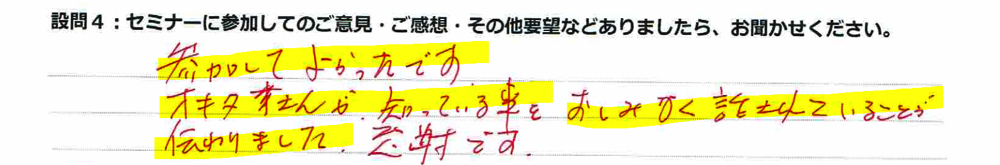 設問４：セミナーに参加してのご意見・ご感想・その他要望などありましたら、お聞かせください。
参加して よかったです
オキタさんが、知っている事を おしみなく 話されていることが
伝わりました。感謝です。